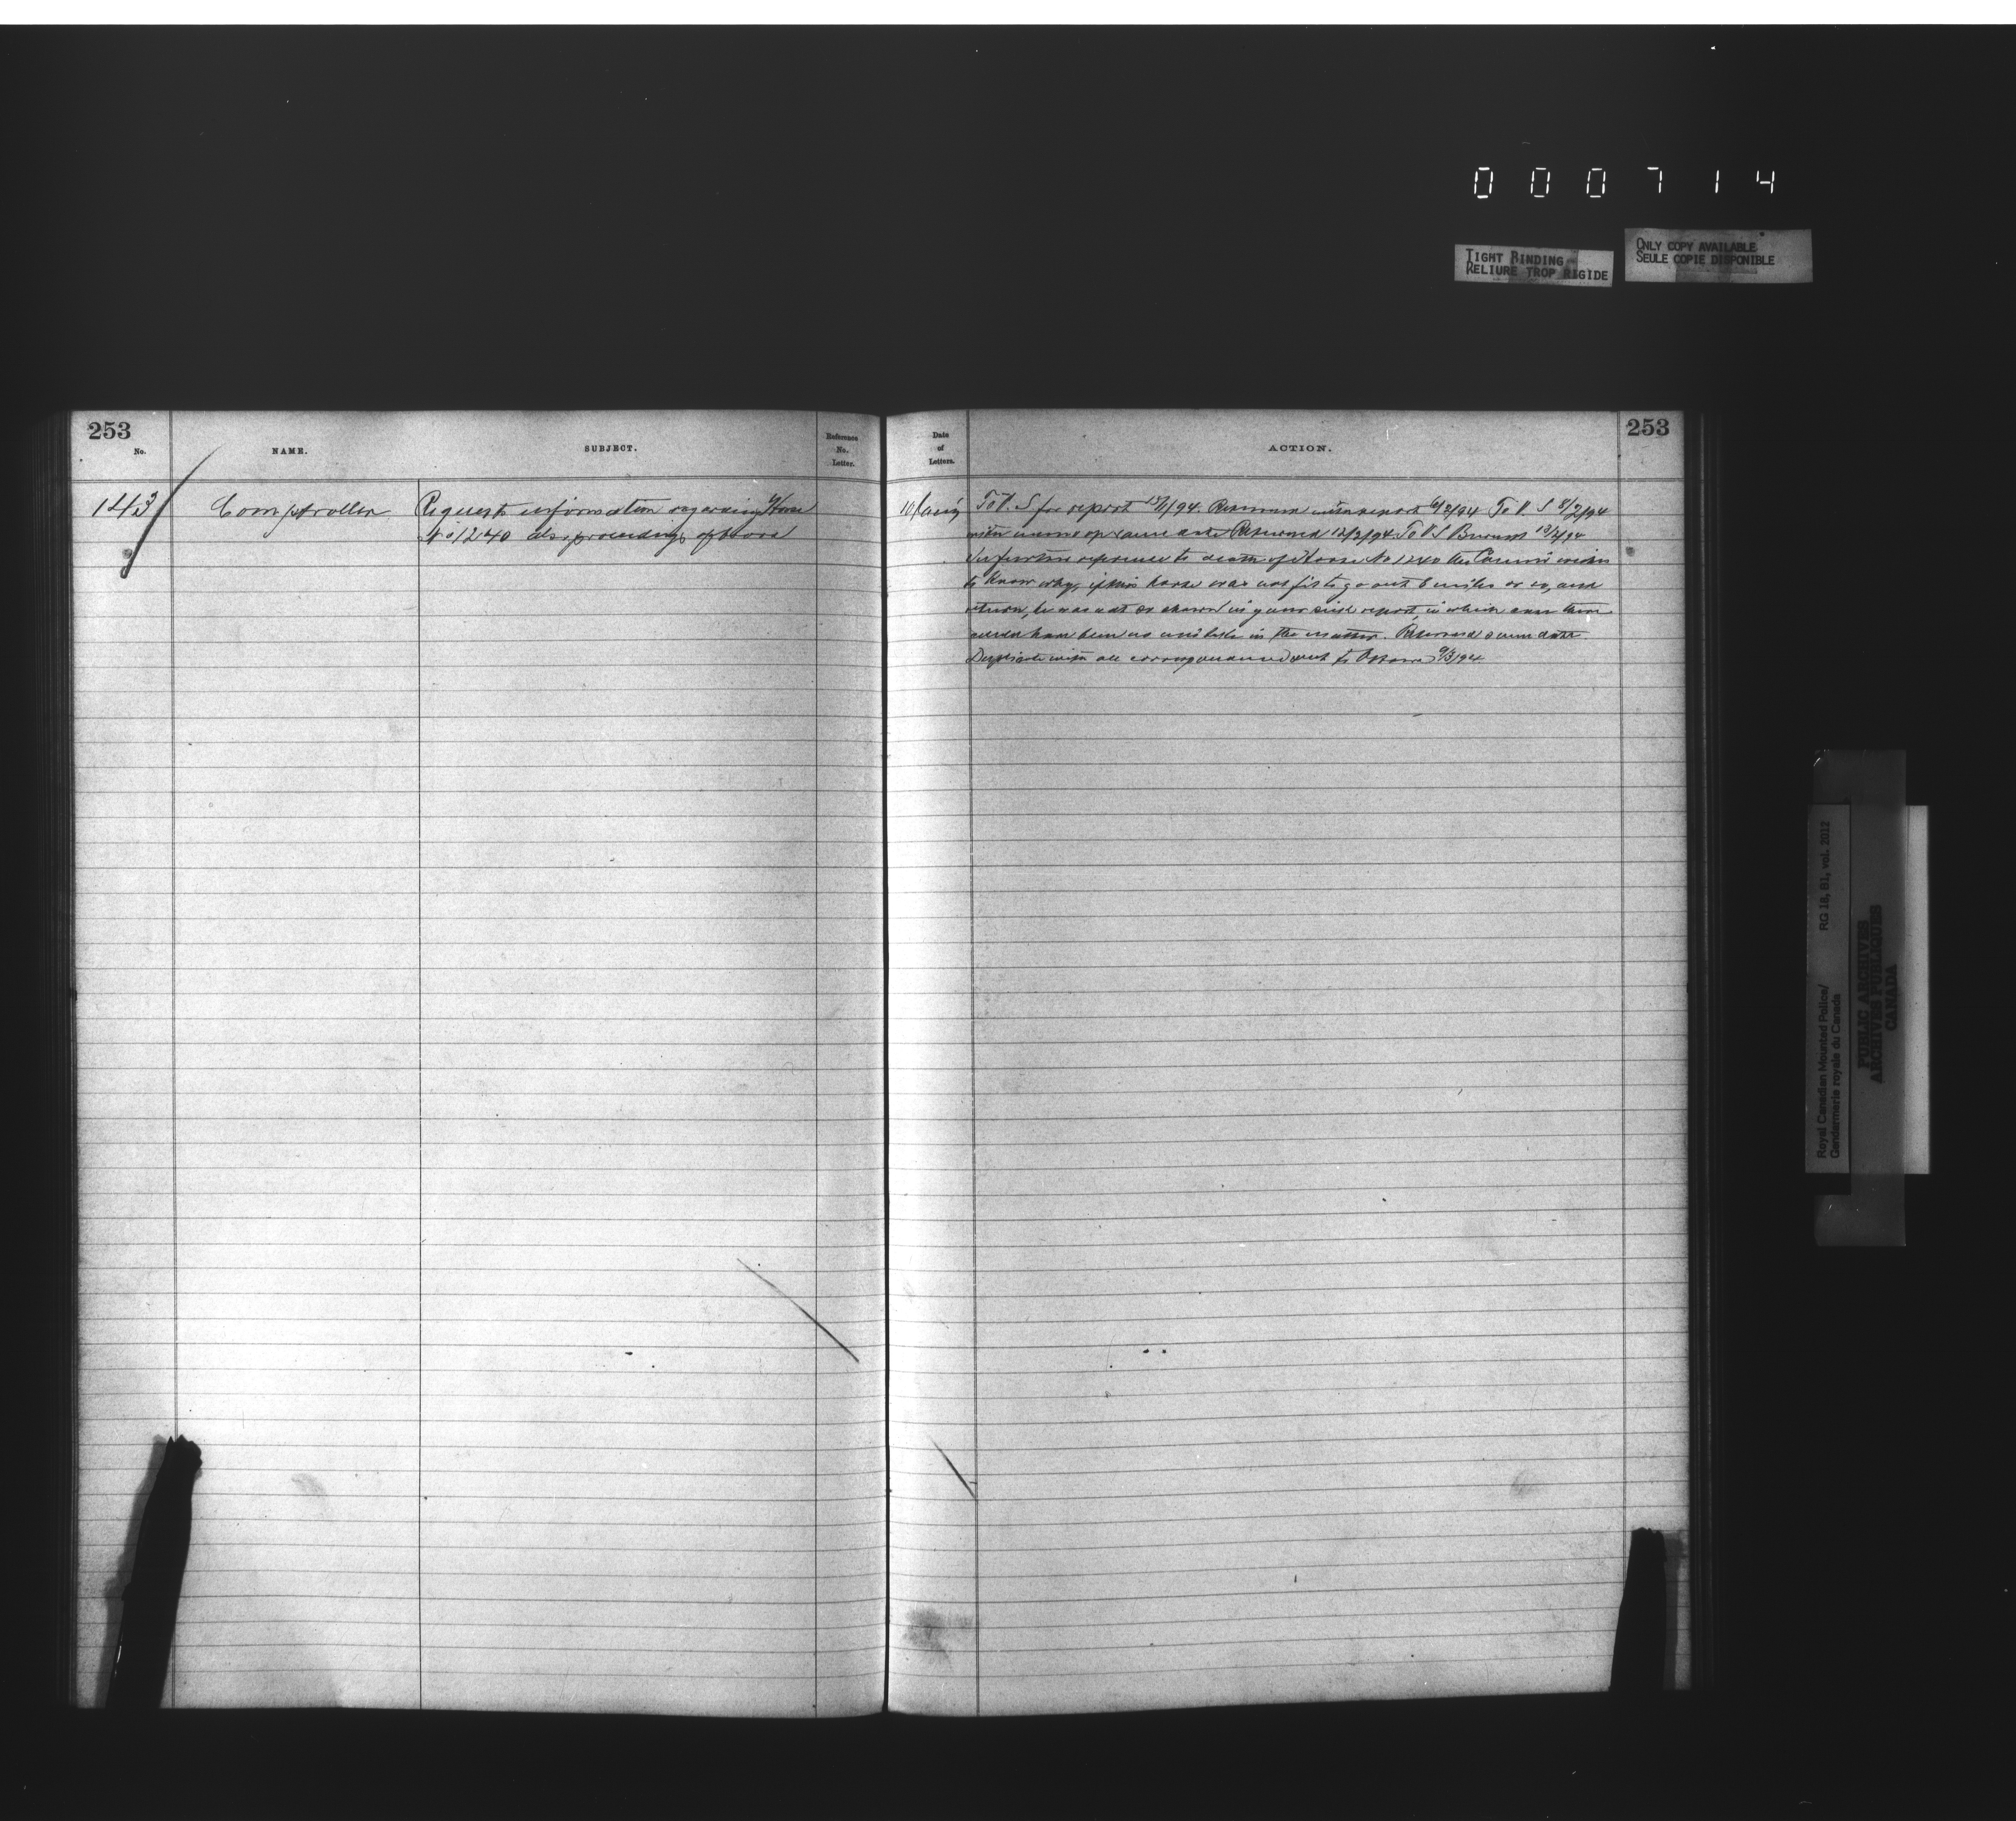 000714
TIGHT BINDING
RELIURE TROP RIGIDE
ONLY COPY AVAILABLE
SEULE COPIE DISPONIBLE
253
No.
NAME.
SUBJECT.
Reference
No.
Letter.
Date
of
Letters.
ACTION.
253
143
Comptroller
Requests information regarding Horse
No 1240 also proceedings of board
To V. S for report /1/94. Returned with report 6/2/94 To V. S 8/2/94
with memo of same date Returned 12/2/94 To V S 13/2/94
In further reference to death of Horse No 1240 the Commr wishes
to know why, if this horse was not fit to go out 6 miles or so, and
return, he was not so shown in your sick report, in which case there
would have been no mistake in the matter. Returned same date
Duplicate with all correspondence sent to Ottawa 9/3/94
Royal Canadian Mounted Police/
Gendarmerie royale du Canada
RG 18, B1, vol. 2012
PUBLIC ARCHIVES
ARCHIVES PUBLIQUES
CANADA